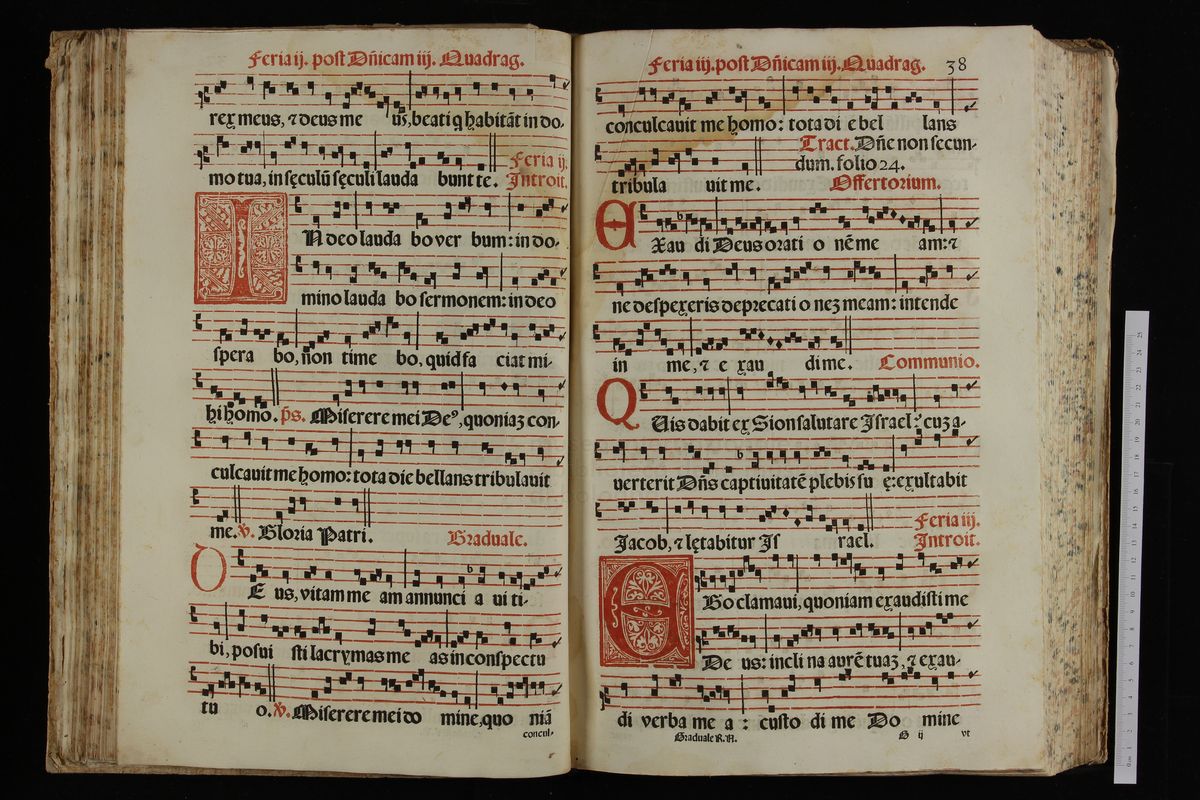 Feria ij. post Dñicam iij. Quadrag.
rex meus, ⁊ deus me us, beati q habitãt in do-
mo tua, in sęculũ sęculi lauda bunt te. Feria ij. Introit.
IN deo lauda bo ver bum: in do-
mino lauda bo sermonem: in deo
spera bo, non time bo, quid fa ciat mi-
hi homo. ps. Miserere mei De⁹, quoniaz con-
culcauit me homo: tota die bellans tribulauit
me. ℣. Gloria Patri. Graduale.
DE us, vitam me am annunci a ui ti-
bi, posui sti lacrymas me as in conspectu
tu o. ℣. Miserere mei do mine, quo niã
concul-
Feria iij. post Dñicam iij. Quadrag. 38
conculcauit me homo: tota di e bel lans
tribula uit me. Tract. Dñe non secun-
dum. folio 24.
Offertorium.
EXau di Deus orati o nẽ me am: ⁊
ne despexeris deprecati o nez meam: intende
in me, ⁊ e xau di me. Communio.
QVis dabit ex Sion salutare Israel: cuz a-
uerterit Dñs captiuitatẽ plebis su ę: exultabit
Jacob, ⁊ lętabitur Is rael. Feria iij. Introit.
EGo clamaui, quoniam exaudisti me
De us: incli na aurẽ tuaz, ⁊ exau-
di verba me a: custo di me Do mine
Graduale R.A. G ij vt